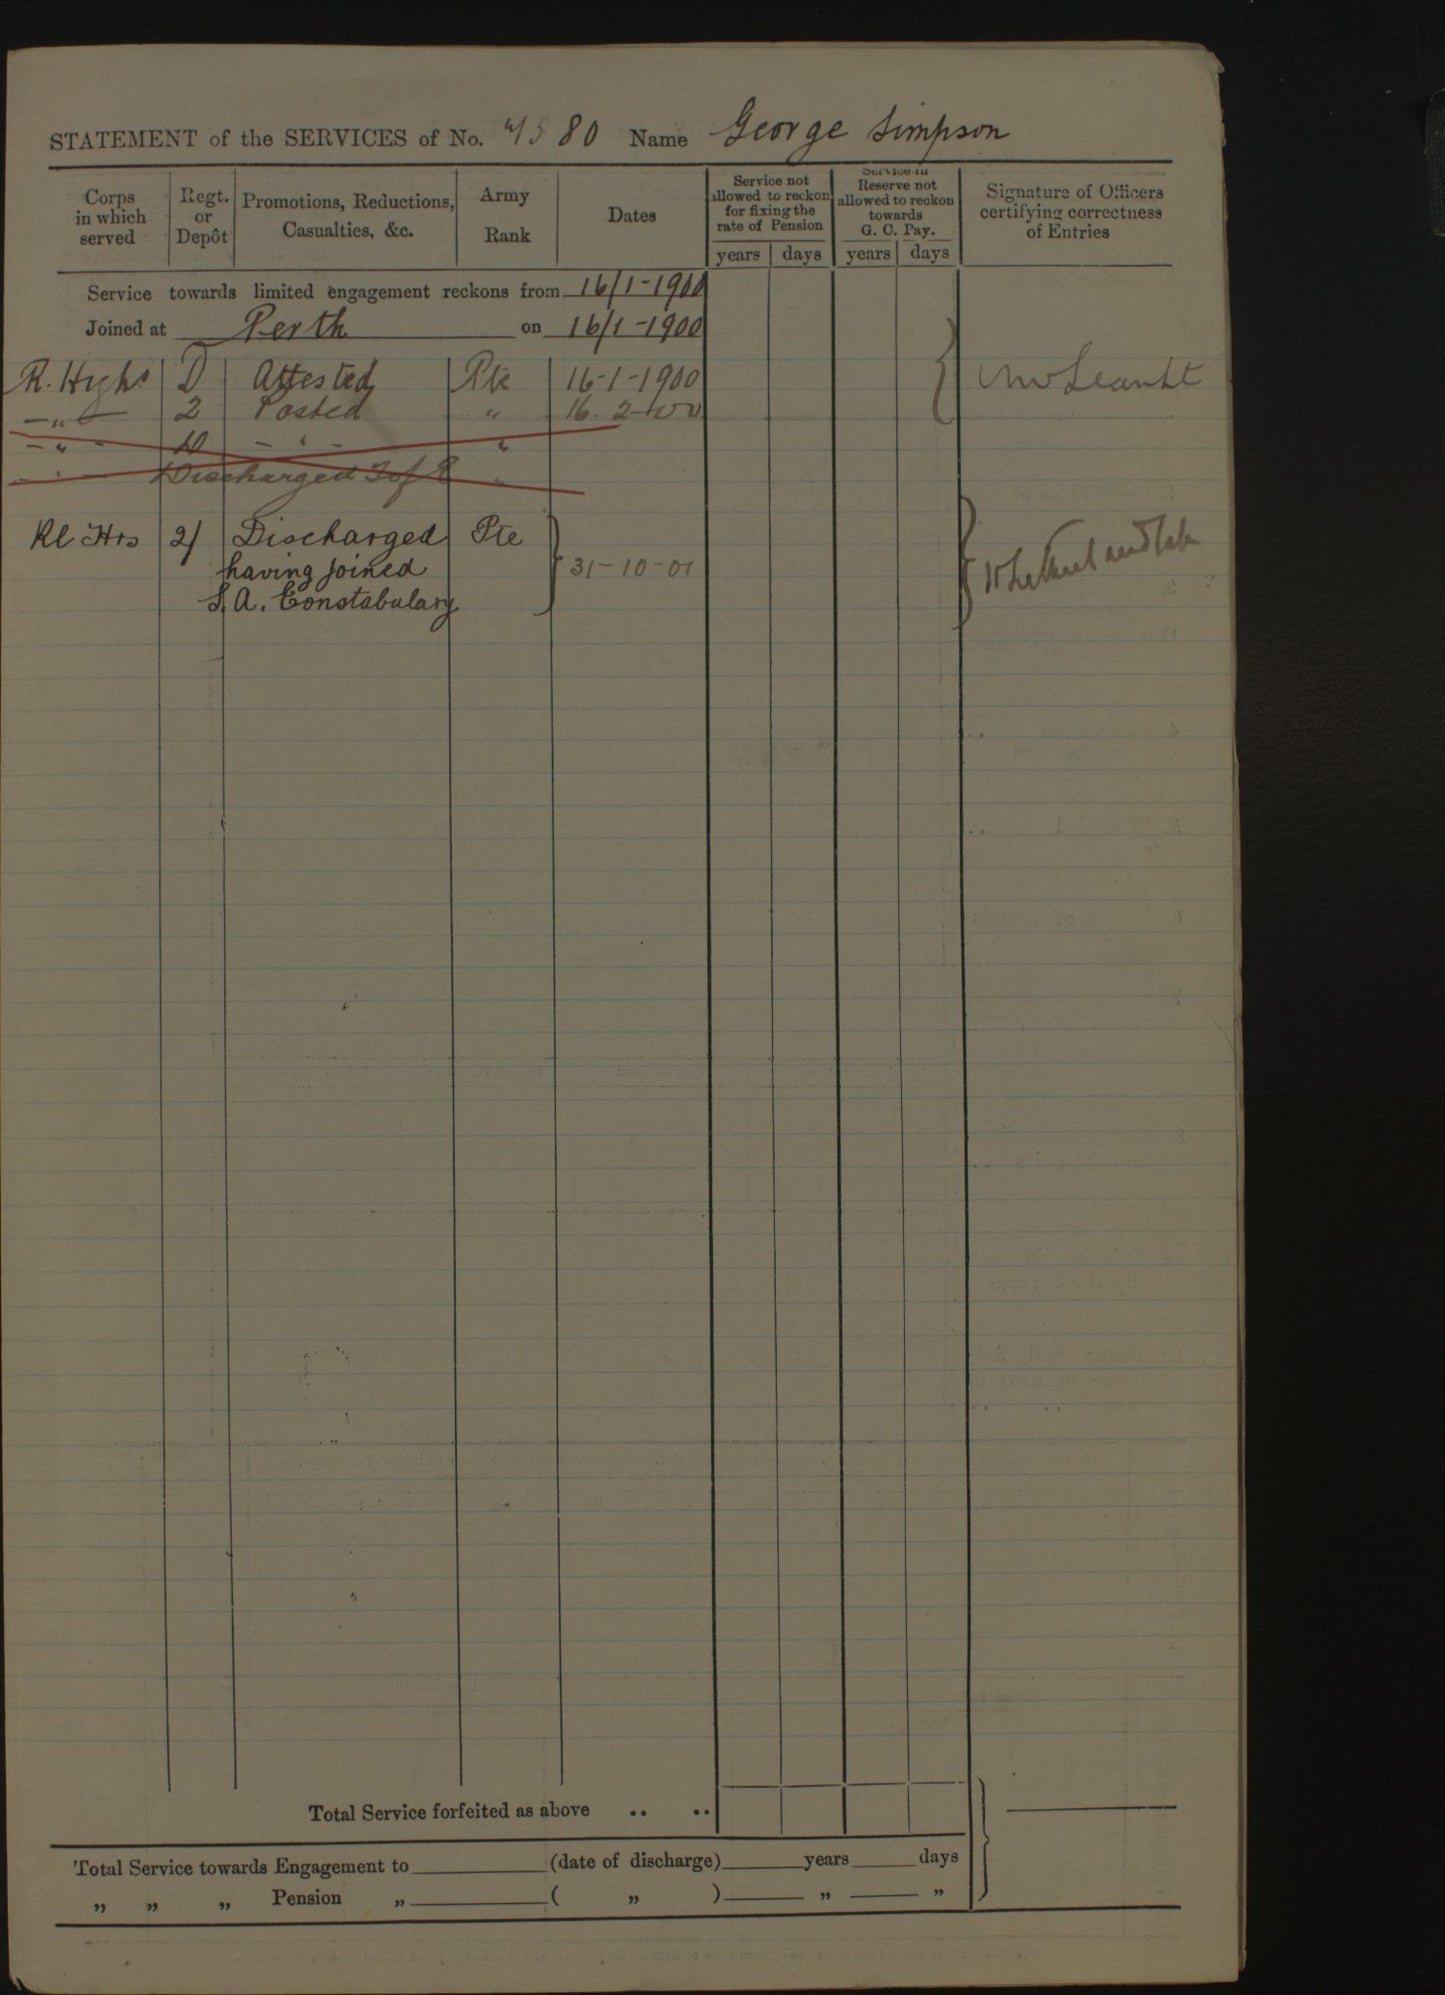 STATEMENT of the SERVICES of No. 4580 Name George Simpson
Corps in which served
Regt. or Depôt
Promotions, Reductions, Casualties, &c.
Army Rank
Dates
Service not allowed to reckon for fixing the rate of Pension
years days
Service in Reserve not allowed to reckon towards G. C. Pay.
years days
Signature of Officers certifying correctness of Entries
Service towards limited engagement reckons from 16/1-1900
Joined at Perth on 16/1-1900
R. Highs D Attested Pte 16-1-1900
-„- 2 Posted „ 16. 2-00
-„- D -„- „
-„- Discharged „
Rl Hrs 2/ Discharged Pte
having joined 31-10-01
S. A. Constabulary
Total Service forfeited as above .. ..
Total Service towards Engagement to (date of discharge) years days
„ „ „ Pension „ ( „ ) „ „